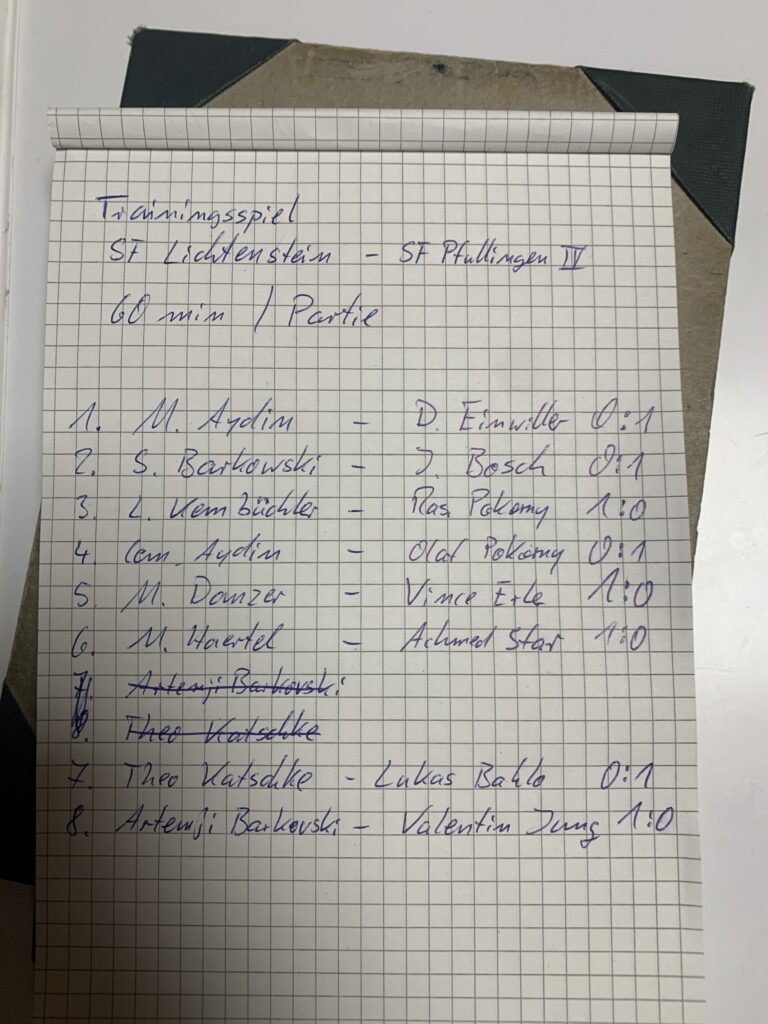 Trainingsspiel
SF Lichtenstein - SF Pfullingen IV
60 min / Partie
1. M. Aydin - D. Einwiller 0:1
2. S. Barkowski - J. Bosch 0:1
3. L. Kembüchler - Ras. Pokorny 1:0
4. Cem. Aydin - Olaf Pokorny 0:1
5. M. Danzer - Vince Erle 1:0
6. M. Haertel - Achmed Star 1:0
7. Artemji Barkovski
8. Theo Katschke
7. Theo Katschke - Lukas Bahlo 0:1
8. Artemji Barkovski - Valentin Jung 1:0